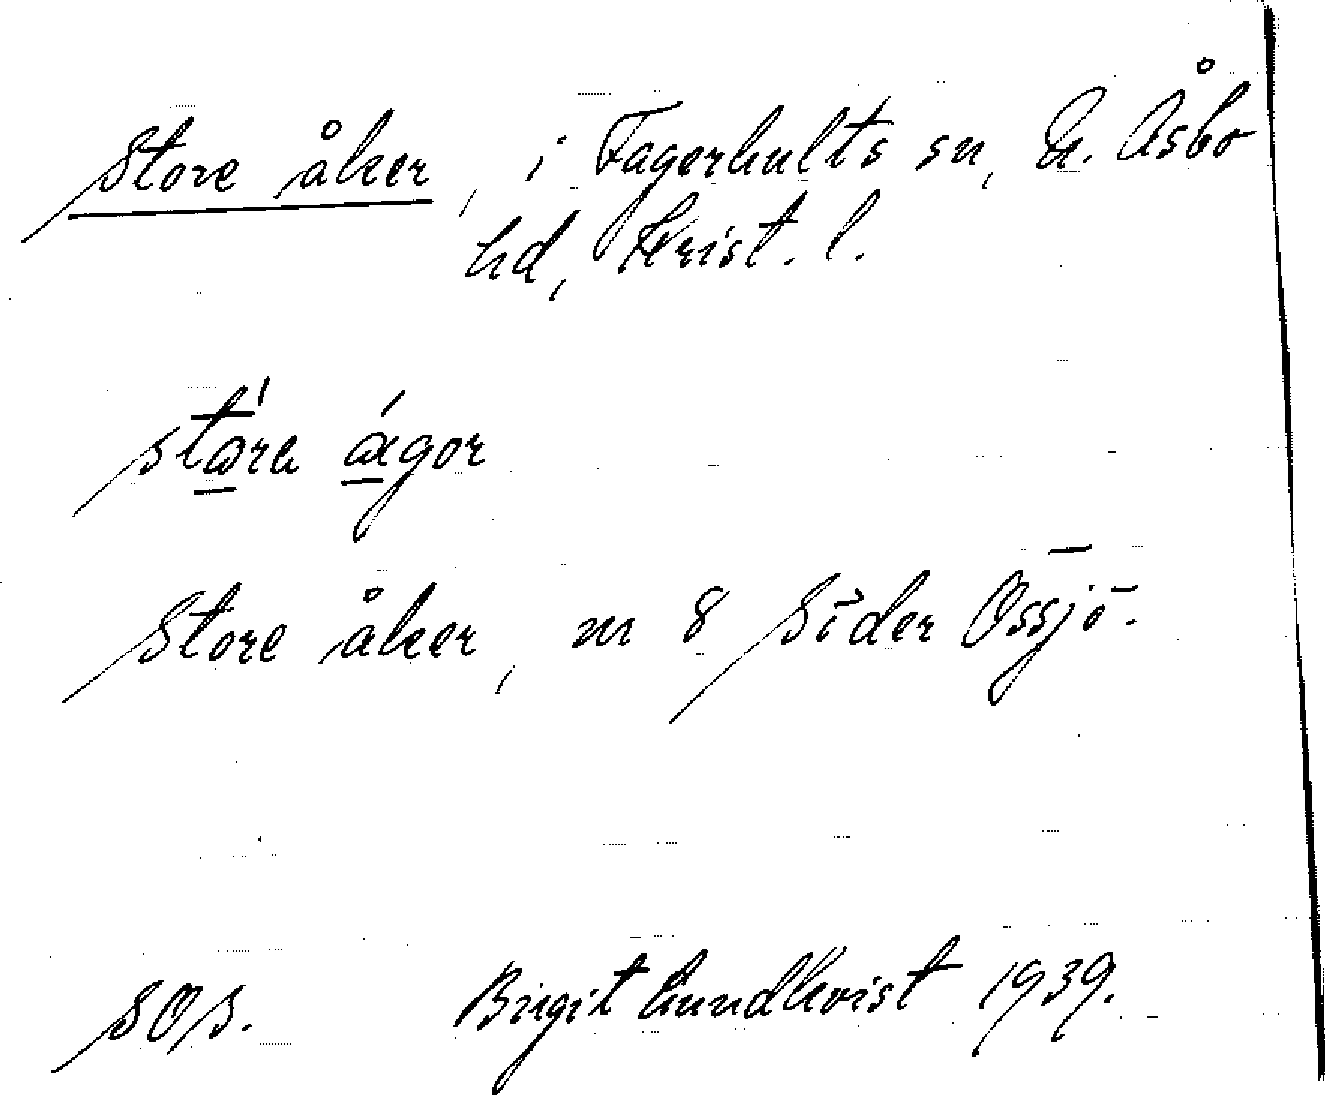 Store åker, i Fagerhults sn, N. Åsbo
hd, Krist. l.
stora ågor
Store åker, nr 8 Söder Össjö.
SOS. Birgit Lundkvist 1939.